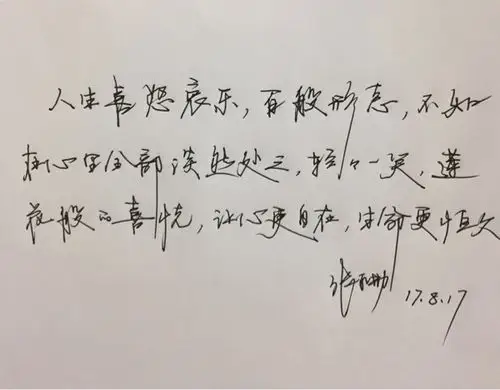 人生喜怒哀乐，百般形态，不如
在心里全部淡然处之，轻轻一笑，莲
花般的喜悦，让心更自在，生命更恒久
17.8.17